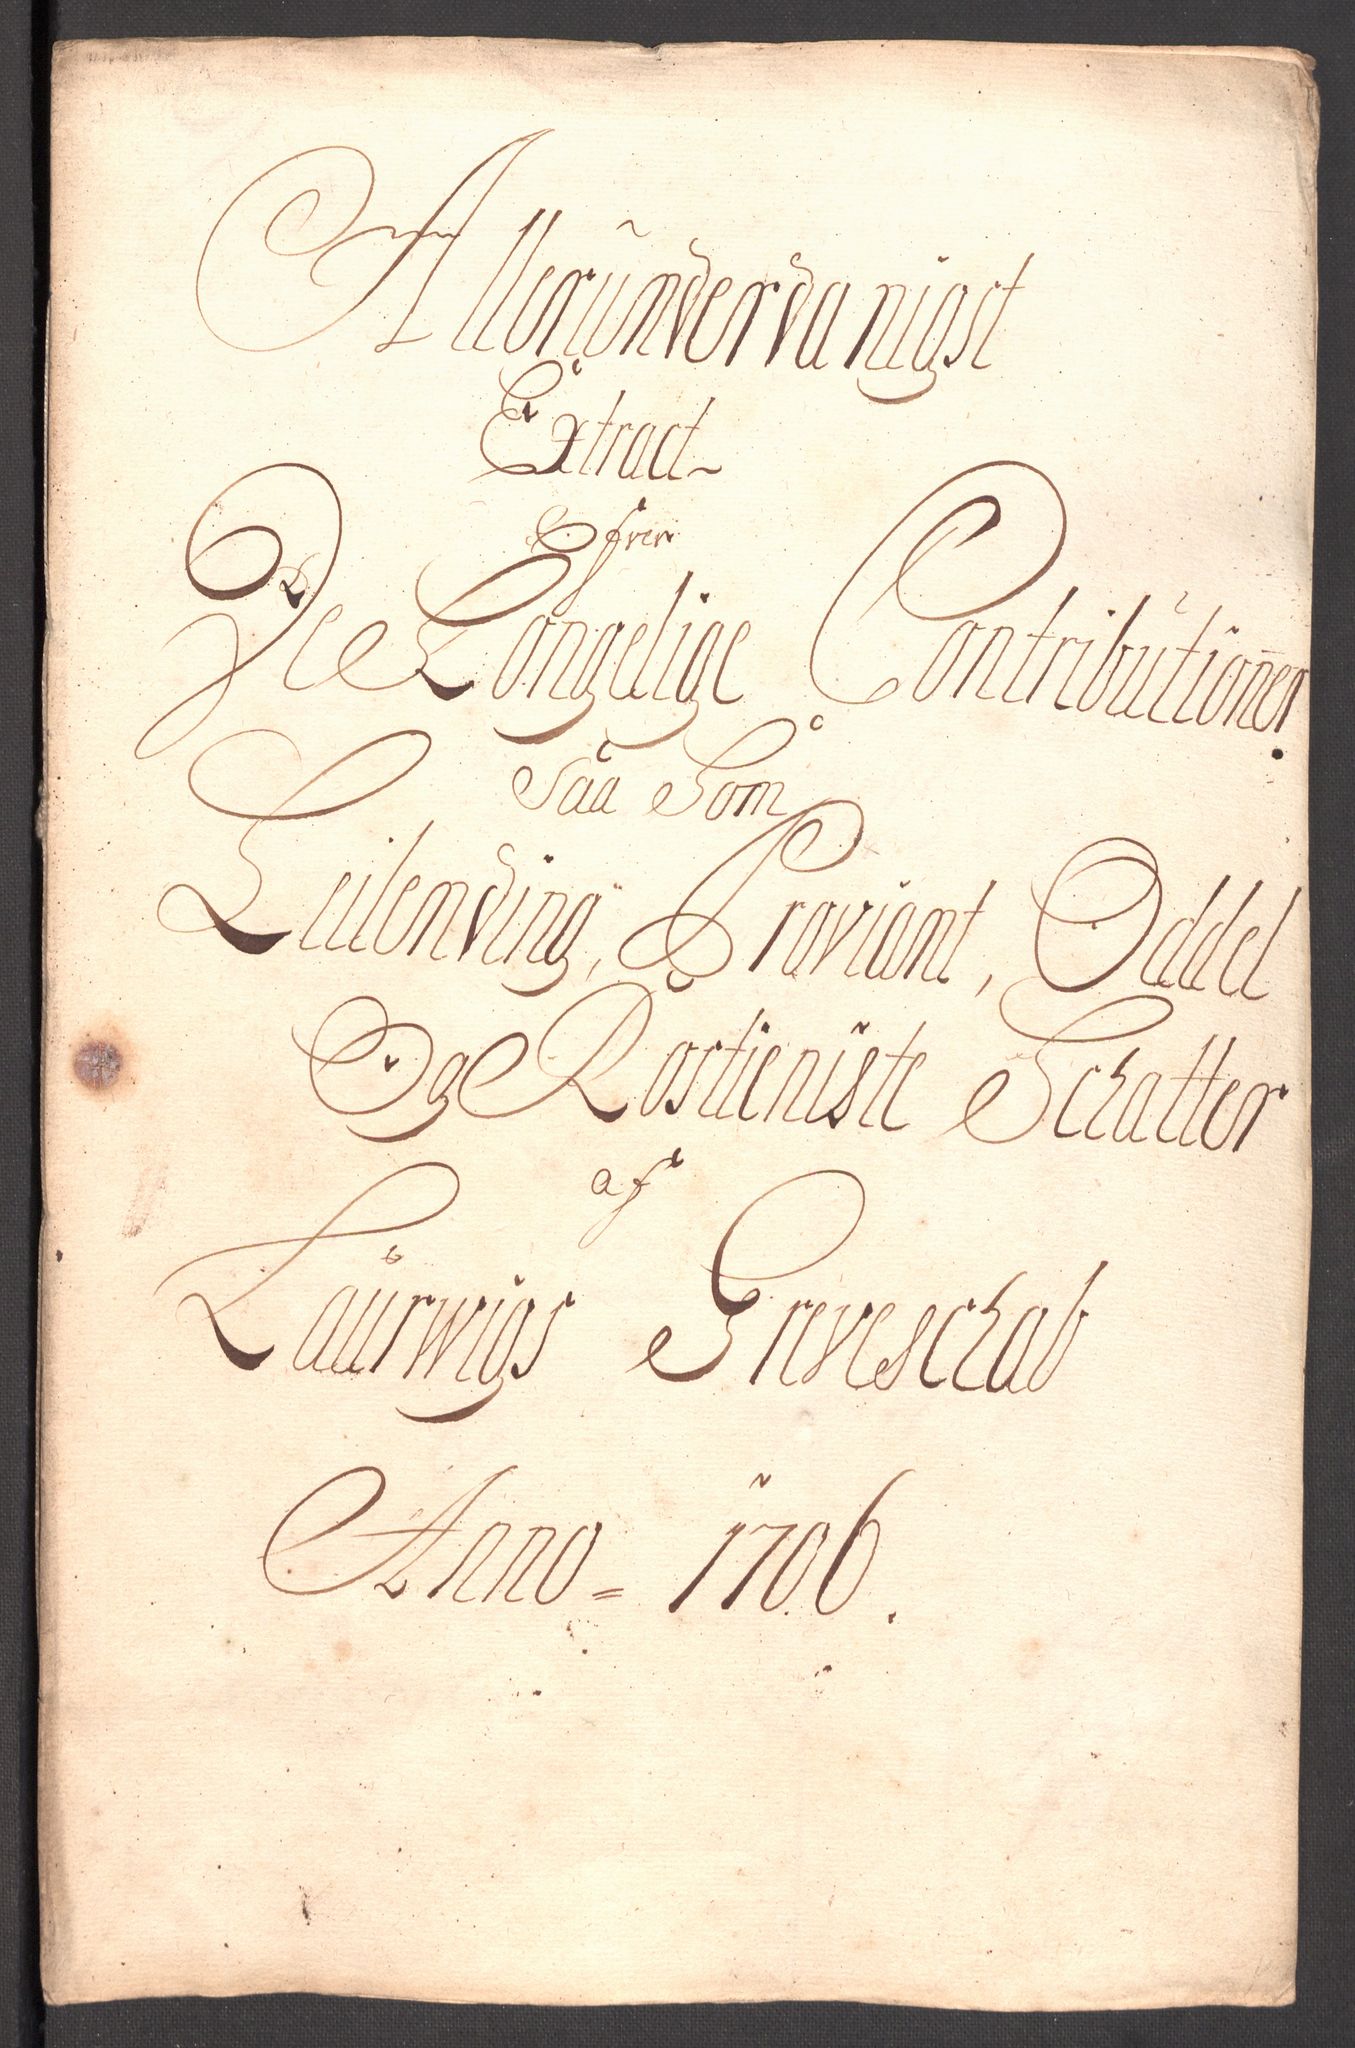 Allerunderdanigst
Extract
Ofver
De Kongelige Contributioner
Saa Som
Leilending, Proviant, Oddel
Og Rostieniste Schatter
af
Laurwigs Greveschab
Anno = 1706.